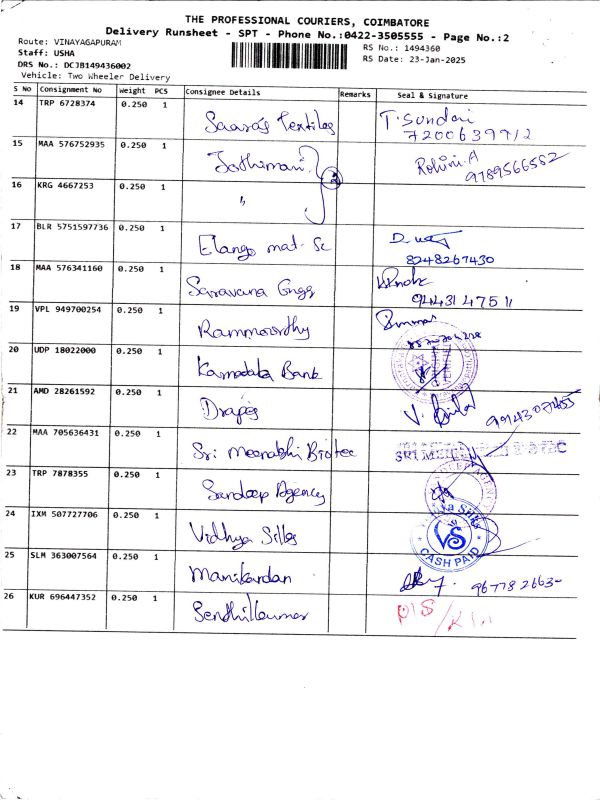 THE PROFESSIONAL COURIERS, COIMBATORE
Delivery Runsheet - SPT - Phone No.:0422-3505555 - Page No.:2
Route: VINAYAGAPURAM
Staff: USHA
DRS No.: DCJB149436002
Vehicle: Two Wheeler Delivery
RS No.: 1494360
RS Date: 23-Jan-2025
S No Consignment No Weight PCS Consignee Details Remarks Seal & Signature
14 TRP 6728374 0.250 1 Textiles T. Sundari
7200639712
15 MAA 576752935 0.250 1 Jothimani Rohini.A
9789566562
16 KRG 4667253 0.250 1 "
17 BLR 5751597736 0.250 1 Elango mat. Sc
8248267430
18 MAA 576341160 0.250 1 Saravana Engg
9443147511
19 VPL 949700254 0.250 1 Rammoorthy
20 UDP 18022000 0.250 1 Karnataka Bank
21 AMD 28261592 0.250 1 Drapes V.
22 MAA 705636431 0.250 1 Sri Meenakshi Biotec SRI
23 TRP 7878355 0.250 1 Sandeep Agency
24 IXM 507727706 0.250 1 Vidhya Silks VS CASH PAID
25 SLM 363007564 0.250 1 Manikandan
26 KUR 696447352 0.250 1 Senthilkumar